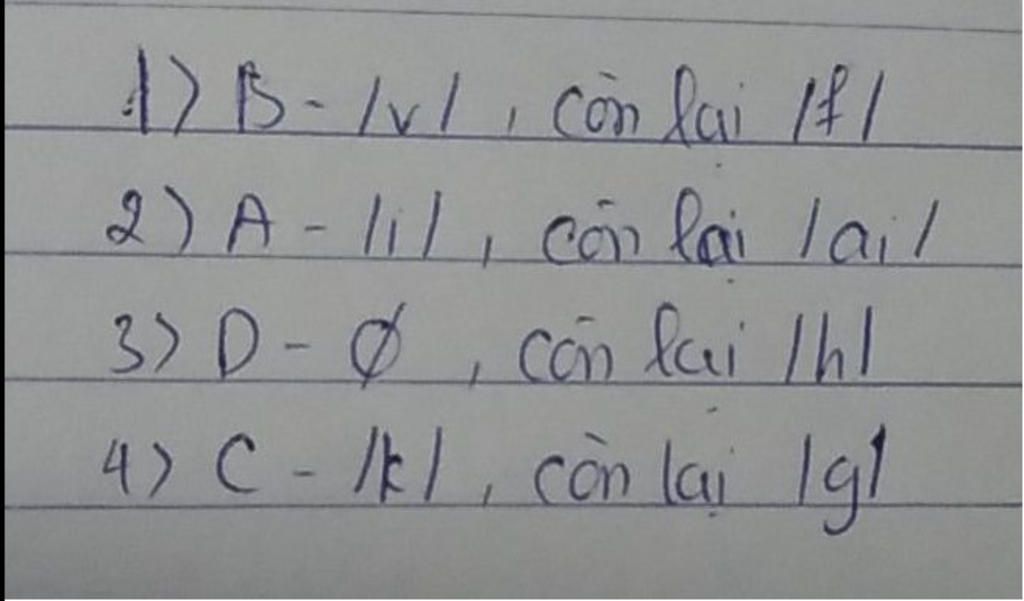 1) B - /v/, còn lại /f/
2) A - /i/, còn lại /ai/
3) D - ∅, còn lại /h/
4) C - /k/, còn lại /g/